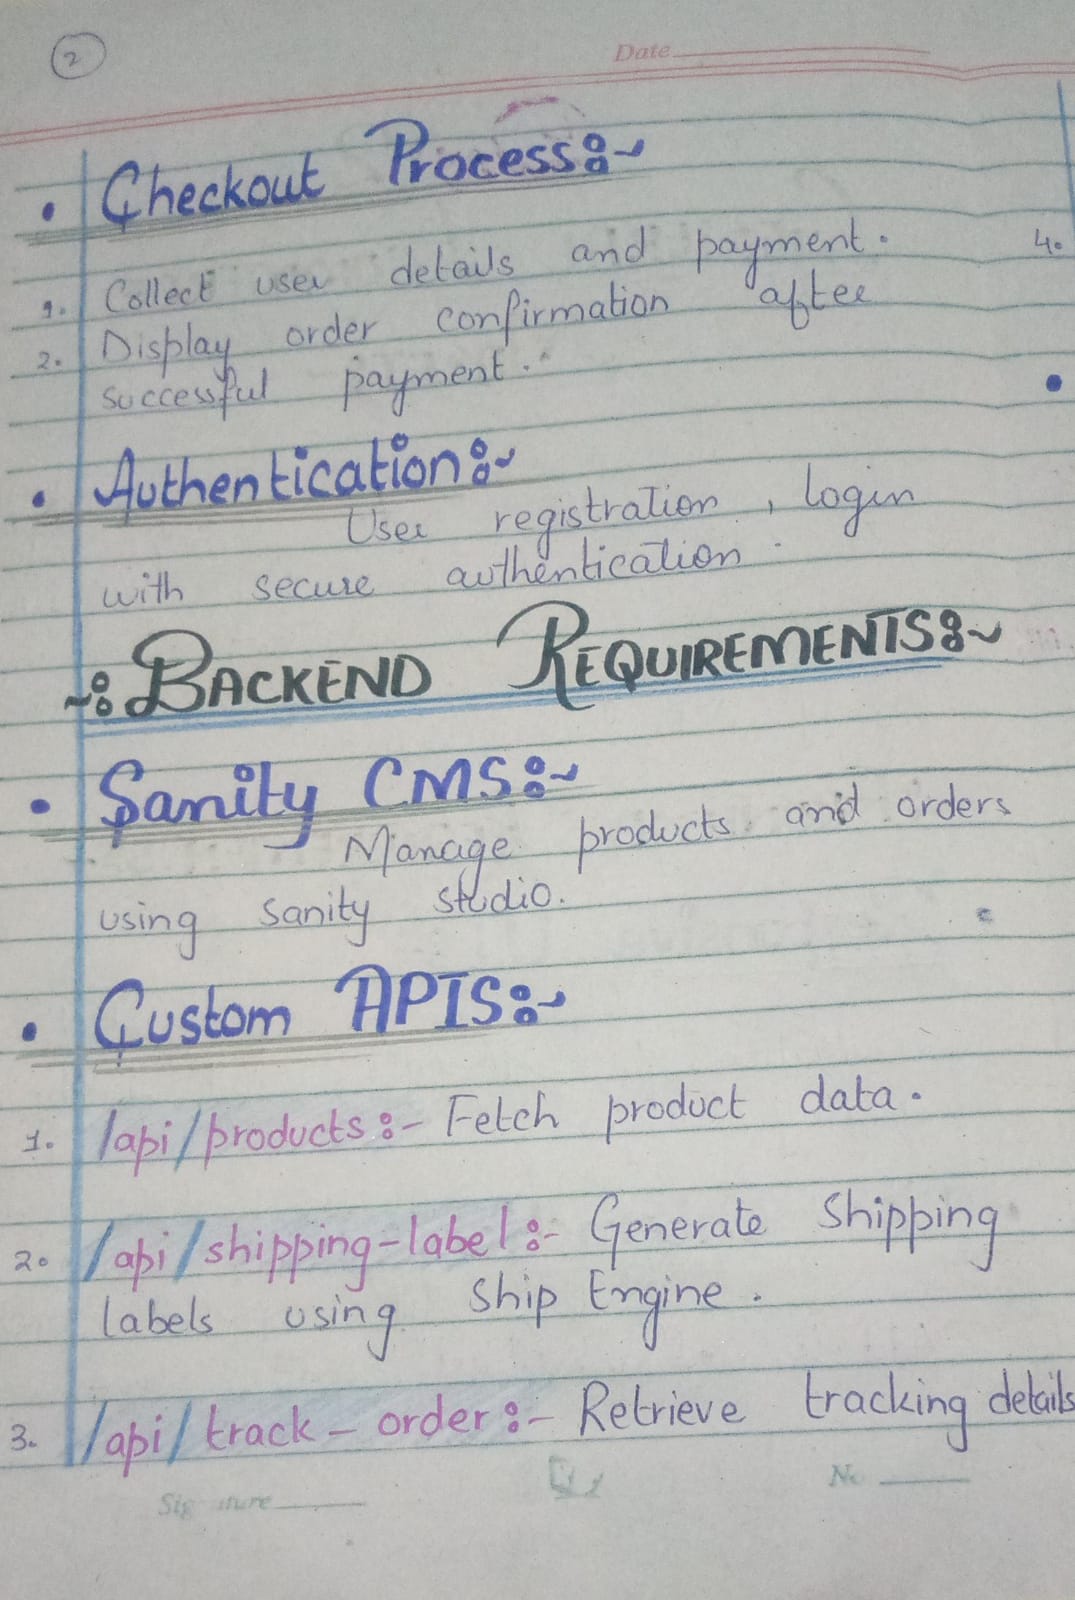 2
Date
• Checkout Process:~
1. Collect user details and payment.
2. Display order confirmation after
successful payment.
• Authentication:~
User registration, login
with secure authentication.
~: BACKEND REQUIREMENTS:~
• Sanity CMS:~
Manage products and orders
using sanity studio.
• Custom APIS:~
1. /api/products:- Fetch product data.
2. /api/shipping-label:- Generate Shipping
labels using Ship Engine.
3. /api/track-order:- Retrieve tracking details
Signature No
4.
•